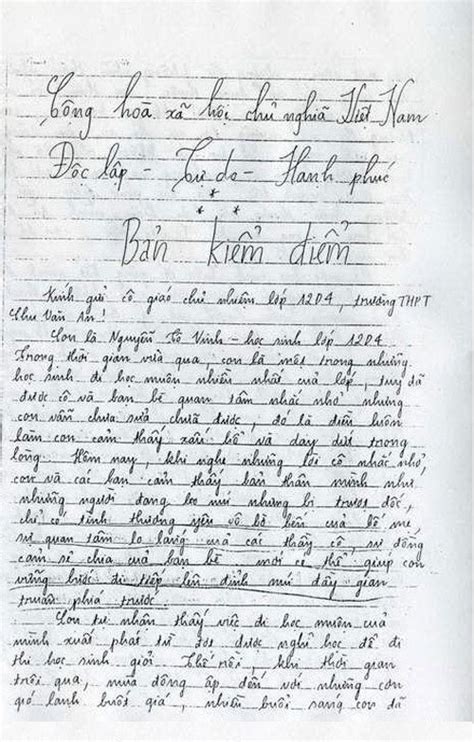 Cộng hoà xã hội chủ nghĩa Việt Nam
Độc lập - Tự do - Hạnh phúc
* * *
Bản kiểm điểm
Kính gửi cô giáo chủ nhiệm lớp 12D4, trường THPT
Chu Văn An!
Con là Nguyễn Tô Vinh - học sinh lớp 12D4
Trong thời gian vừa qua, con là một trong những
học sinh đi học muộn nhiều nhất của lớp, tuy đã
được cô và bạn bè quan tâm nhắc nhở nhưng
con vẫn chưa sửa chữa được, đó là điều luôn
làm con cảm thấy xấu hổ và day dứt trong
lòng. Hôm nay, khi nghe những lời cô nhắc nhở,
con và các bạn cảm thấy bản thân mình như
những người đang leo núi nhưng bị trượt dốc,
chỉ có tình thương yêu vô bờ bến của bố mẹ,
sự quan tâm lo lắng của các thầy cô, sự đồng
cảm sẻ chia của bạn bè mới có thể giúp con
vững bước đi tiếp lên đỉnh núi đầy gian
truân phía trước.
Con tự nhận thấy việc đi học muộn của
mình xuất phát từ đợt được nghỉ học để đi
thi học sinh giỏi. Thế rồi, khi thời gian
trôi qua, mùa đông ập đến với những cơn
gió lạnh buốt giá, nhiều buổi sáng con đã